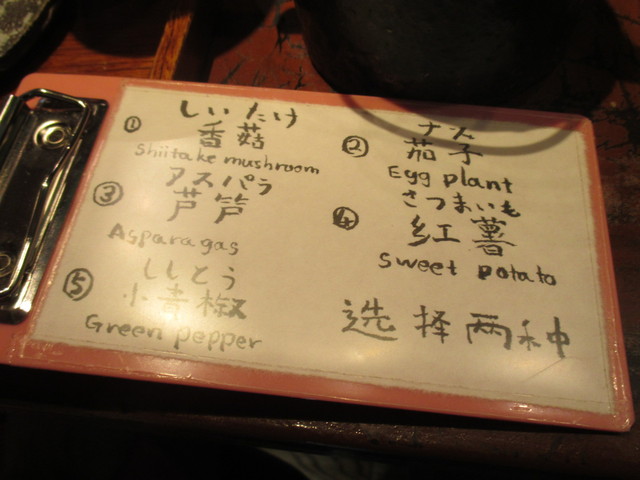 ① しいたけ
香菇
Shiitake mushroom
② ナス
茄子
Egg plant
③ アスパラ
芦笋
Asparagas
④ さつまいも
红薯
Sweet potato
⑤ ししとう
小青椒
Green pepper
选择两种